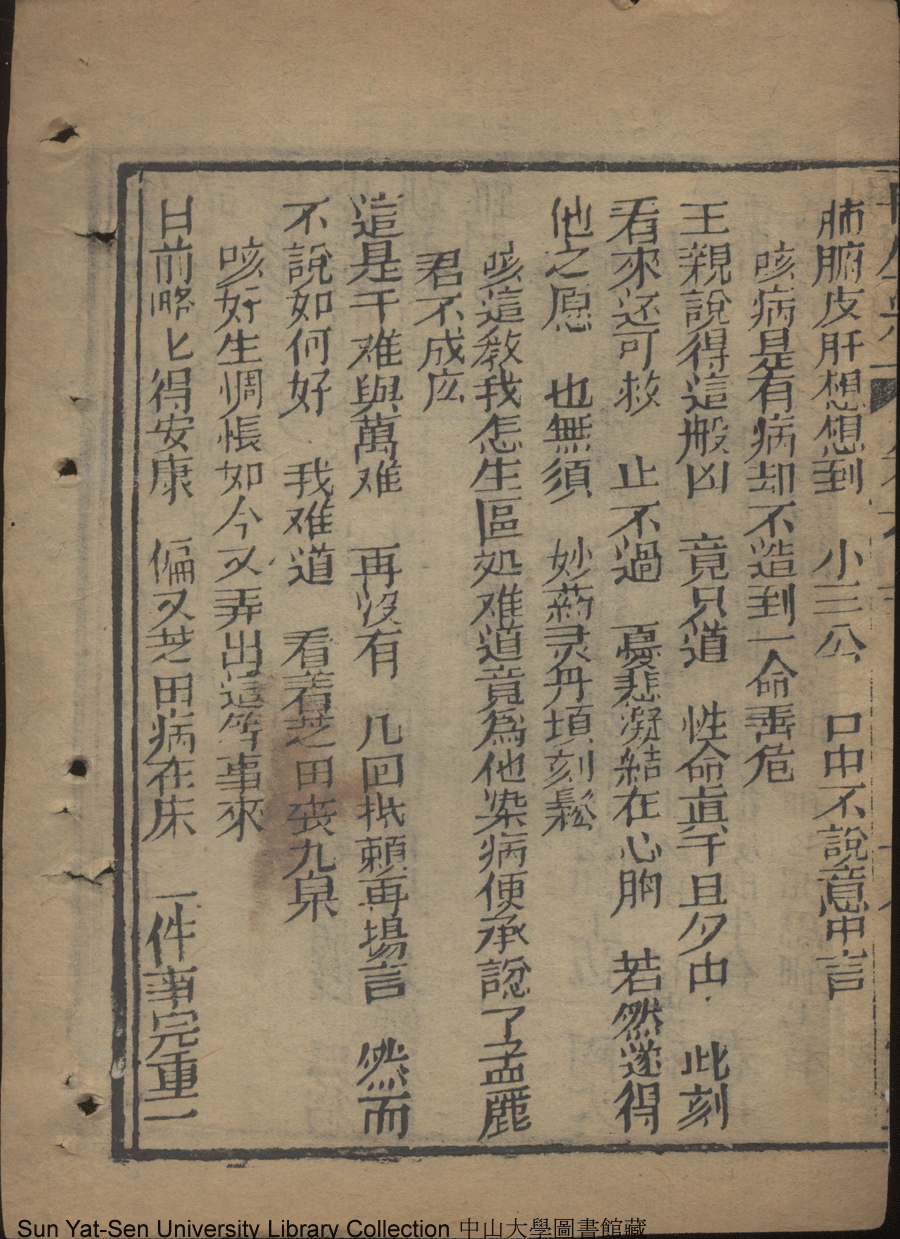 肺腑皮肝想想到　小三公　口中不說意中言
咳病是有病却不造到一命垂危
王親說得這般凶　竟只道　性命眞千旦夕中　此刻
看來还可救　止不過　憂悲凝結在心胸　若然遂得
他之愿　也無須　妙葯灵丹頃刻鬆
咳這教我怎生區処难道竟為他染病便承說了孟麗
君不成庅
這是千难與萬难　再沒有　几回抵賴再場言　然而
不說如何好　我难道　看着芝田喪九泉
咳好生惆悵如今又弄出這等事來
日前略匕得安康　偏又芝田病在床　一件事完重一
Sun Yat-Sen University Library Collection 中山大學圖書館藏